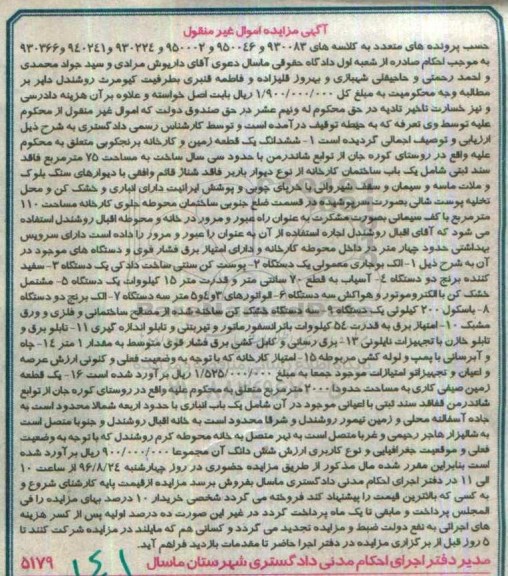 آگهی مزایده اموال غیر منقول
حسب پرونده های متعدد به کلاسه های ۹۳۰۰۸۳ و ۹۵۰۰۴۶ و ۹۵۰۰۰۲ و ۹۳۰۲۲۴ و ۹۴۰۲۴۱ و ۹۳۰۳۶۶
به موجب احکام صادره از شعبه اول دادگاه حقوقی ماسال دعوی آقای داریوش مرادی و سید جواد محمدی
و احمد رحمتی و حاجیقلی شهبازی و بهروز قلیزاده و فاطمه قنبری بطرفیت کیومرث روشندل دایر بر
مطالبه وجه محکومیت به مبلغ کل ۱/۹۰۰/۰۰۰/۰۰۰ ریال بابت اصل خواسته و علاوه بر آن هزینه دادرسی
و نیز خسارت تاخیر تادیه در حق محکوم له ونیم عشر در حق صندوق دولت که اموال غیر منقول از محکوم
علیه توسط وی تعرفه که به حیطه توقیف درآمده است و توسط کارشناس رسمی دادگستری به شرح ذیل
ارزیابی و توصیف اجمالی گردیده است ۱- ششدانگ یک قطعه زمین و کارخانه برنجکوبی متعلق به محکوم
علیه واقع در روستای کوره جان از توابع شاندرمن با حدود سی سال ساخت به مساحت ۷۵ مترمربع فاقد
سند ثبتی شامل یک باب ساختمان کارخانه از نوع دیوار باربر فاقد شناژ قائم وافقی با دیوارهای سنگ بلوک
و ملات ماسه و سیمان و سقف شیروانی با خرپای چوبی و پوشش ایرانیت دارای انباری و خشک کن و محل
تخلیه پوست شالی بصورت سرپوشیده در قسمت ضلع جنوبی ساختمان محوطه جلوی کارخانه مساحت ۱۱۰
مترمربع با کف سیمانی بصورت مشترک به عنوان راه عبور و مرور در خانه و محوطه اقبال روشندل استفاده
می شود که آقای اقبال روشندل اجازه استفاده از آن به عنوان راه عبور و مرور را داده است دارای سرویس
بهداشتی حدود چهار متر در داخل محوطه کارخانه و دارای امتیاز برق فشار قوی و دستگاه های موجود در
آن به شرح ذیل ۱- الک بوجاری معمولی یک دستگاه ۲- پوست کن سنتی ساخت دادکی یک دستگاه ۳- سفید
کننده برنج دو دستگاه ۴- آسیاب به قطع ۷۰ سانتی متر و قدرت متر ۱۵ کیلووات یک دستگاه ۵- مشتعل
خشک کن با الکتروموتور و هواکش سه دستگاه ۶- الواتورهای ۳و۴و۵ متر سه دستگاه ۷- الک برنج دو دستگاه
۸- باسکول ۲۰۰ کیلوئی یک دستگاه ۹- سه دستگاه خشک کن ساخته شده از مصالح ساختمانی و فلزی و ورق
مشبک ۱۰- امتیاز برق به قدرت ۵۴ کیلووات باترانسفورماتور و تیربتنی و تابلو اندازه گیری ۱۱- تابلو برق و
تابلو خازن با تجهیزات نایلونی ۱۳- برق رسانی و کابل کشی برق فشار قوی متوسط به مقدار ۱ متر ۱۴- چاه
و آبرسانی با پمپ و لوله کشی مربوطه ۱۵- امتیاز کارخانه که با توجه به وضعیت فعلی و کنونی ارزش عرصه
و اعیان و تجهیزاتو امتیازات موجود جمعا به مبلغ ۱/۵۲۵/۰۰۰/۰۰۰ ریال برآورد شده است ۱۶- یک قطعه
زمین صیفی کاری به مساحت حدودا ۳۰۰۰ مترمربع متعلق به محکوم علیه واقع در روستای کوره جان از توابع
شاندرمن فقاقد سند ثبتی با اعیانی موجود در آن شامل یک باب انباری با حدود اربعه شمالا محدود است به
جاده آسفالته محلی و زمین تیمور روشندل و شرقا محدود است به خانه اقبال روشندل و جنوبا متصل است
به شالیزار هاجر رحیمی و غربا متصل است به نهر متصل به خانه محوطه کرم روشندل که با توجه به وضعیت
فعلی و موقعیت جغرافیایی و نوع کاربری ارزش شش دانگ آن مجموعا ۹۰۰/۰۰۰/۰۰۰ ریال برآورد شده
است بنابراین مقرر شده مال مذکور از طریق مزایده حضوری در روز چهارشنبه ۹۶/۸/۲۴ از ساعت ۱۰
الی ۱۱ در دفتر اجرای احکام مدنی دادگستری ماسال بفروش برسد مزایده ازقیمت پایه کارشناسی شروع و
به کسی که بالاترین قیمت را پیشنهاد کند فروخته می گردد شخصی خریدار ۱۰ درصد بهای مزایده را فی
المجلس پرداخت و مابقی تا یک ماه پرداخت گردد در غیر این صورت ده درصد اولیه پس از کسر هزینه
های اجرائی به نفع دولت ضبط و مزایده تجدید می گردد و کسانی هم که مایلند در مزایده شرکت کنند تا
۵ روز قبل از برگزاری مزایده در دفتر اجرا حاضر تا مقدمات بازدید فراهم آید.
مدیر دفتر اجرای احکام مدنی دادگستری شهرستان ماسال
۵۱۷۹